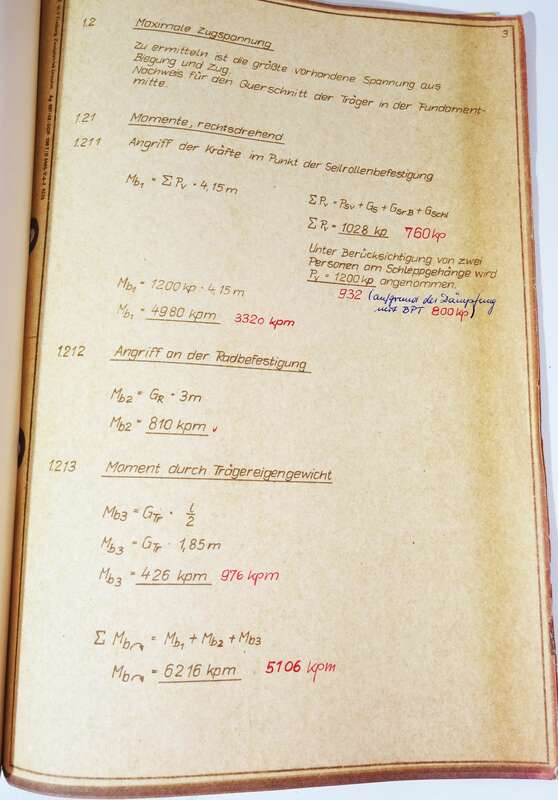 3
1.2 Maximale Zugspannung
Zu ermitteln ist die größte vorhandene Spannung aus
Biegung und Zug.
Nachweis für den Querschnitt der Träger in der Fundament-
mitte.
1.21 Momente, rechtsdrehend
1.211 Angriff der Kräfte im Punkt der Seilrollenbefestigung
Mb1 = Σ Pv · 4,15 m
Σ Pv = PSv + GS + GSrB + GSchl
Σ Pv = 1028 kp 760 kp
Unter Berücksichtigung von zwei
Personen am Schleppgehänge wird
Pv = 1200 kp angenommen.
932 (aufgrund der Dämpfung
mit BPT 800 kp)
Mb1 = 1200 kp · 4,15 m
Mb1 = 4980 kpm 3320 kpm
1.212 Angriff an der Radbefestigung
Mb2 = GR · 3m
Mb2 = 810 kpm
1.213 Moment durch Trägereigengewicht
Mb3 = GTr · l/2
Mb3 = GTr · 1,85 m
Mb3 = 426 kpm 976 kpm
Σ Mb = Mb1 + Mb2 + Mb3
Mb = 6216 kpm 5106 kpm